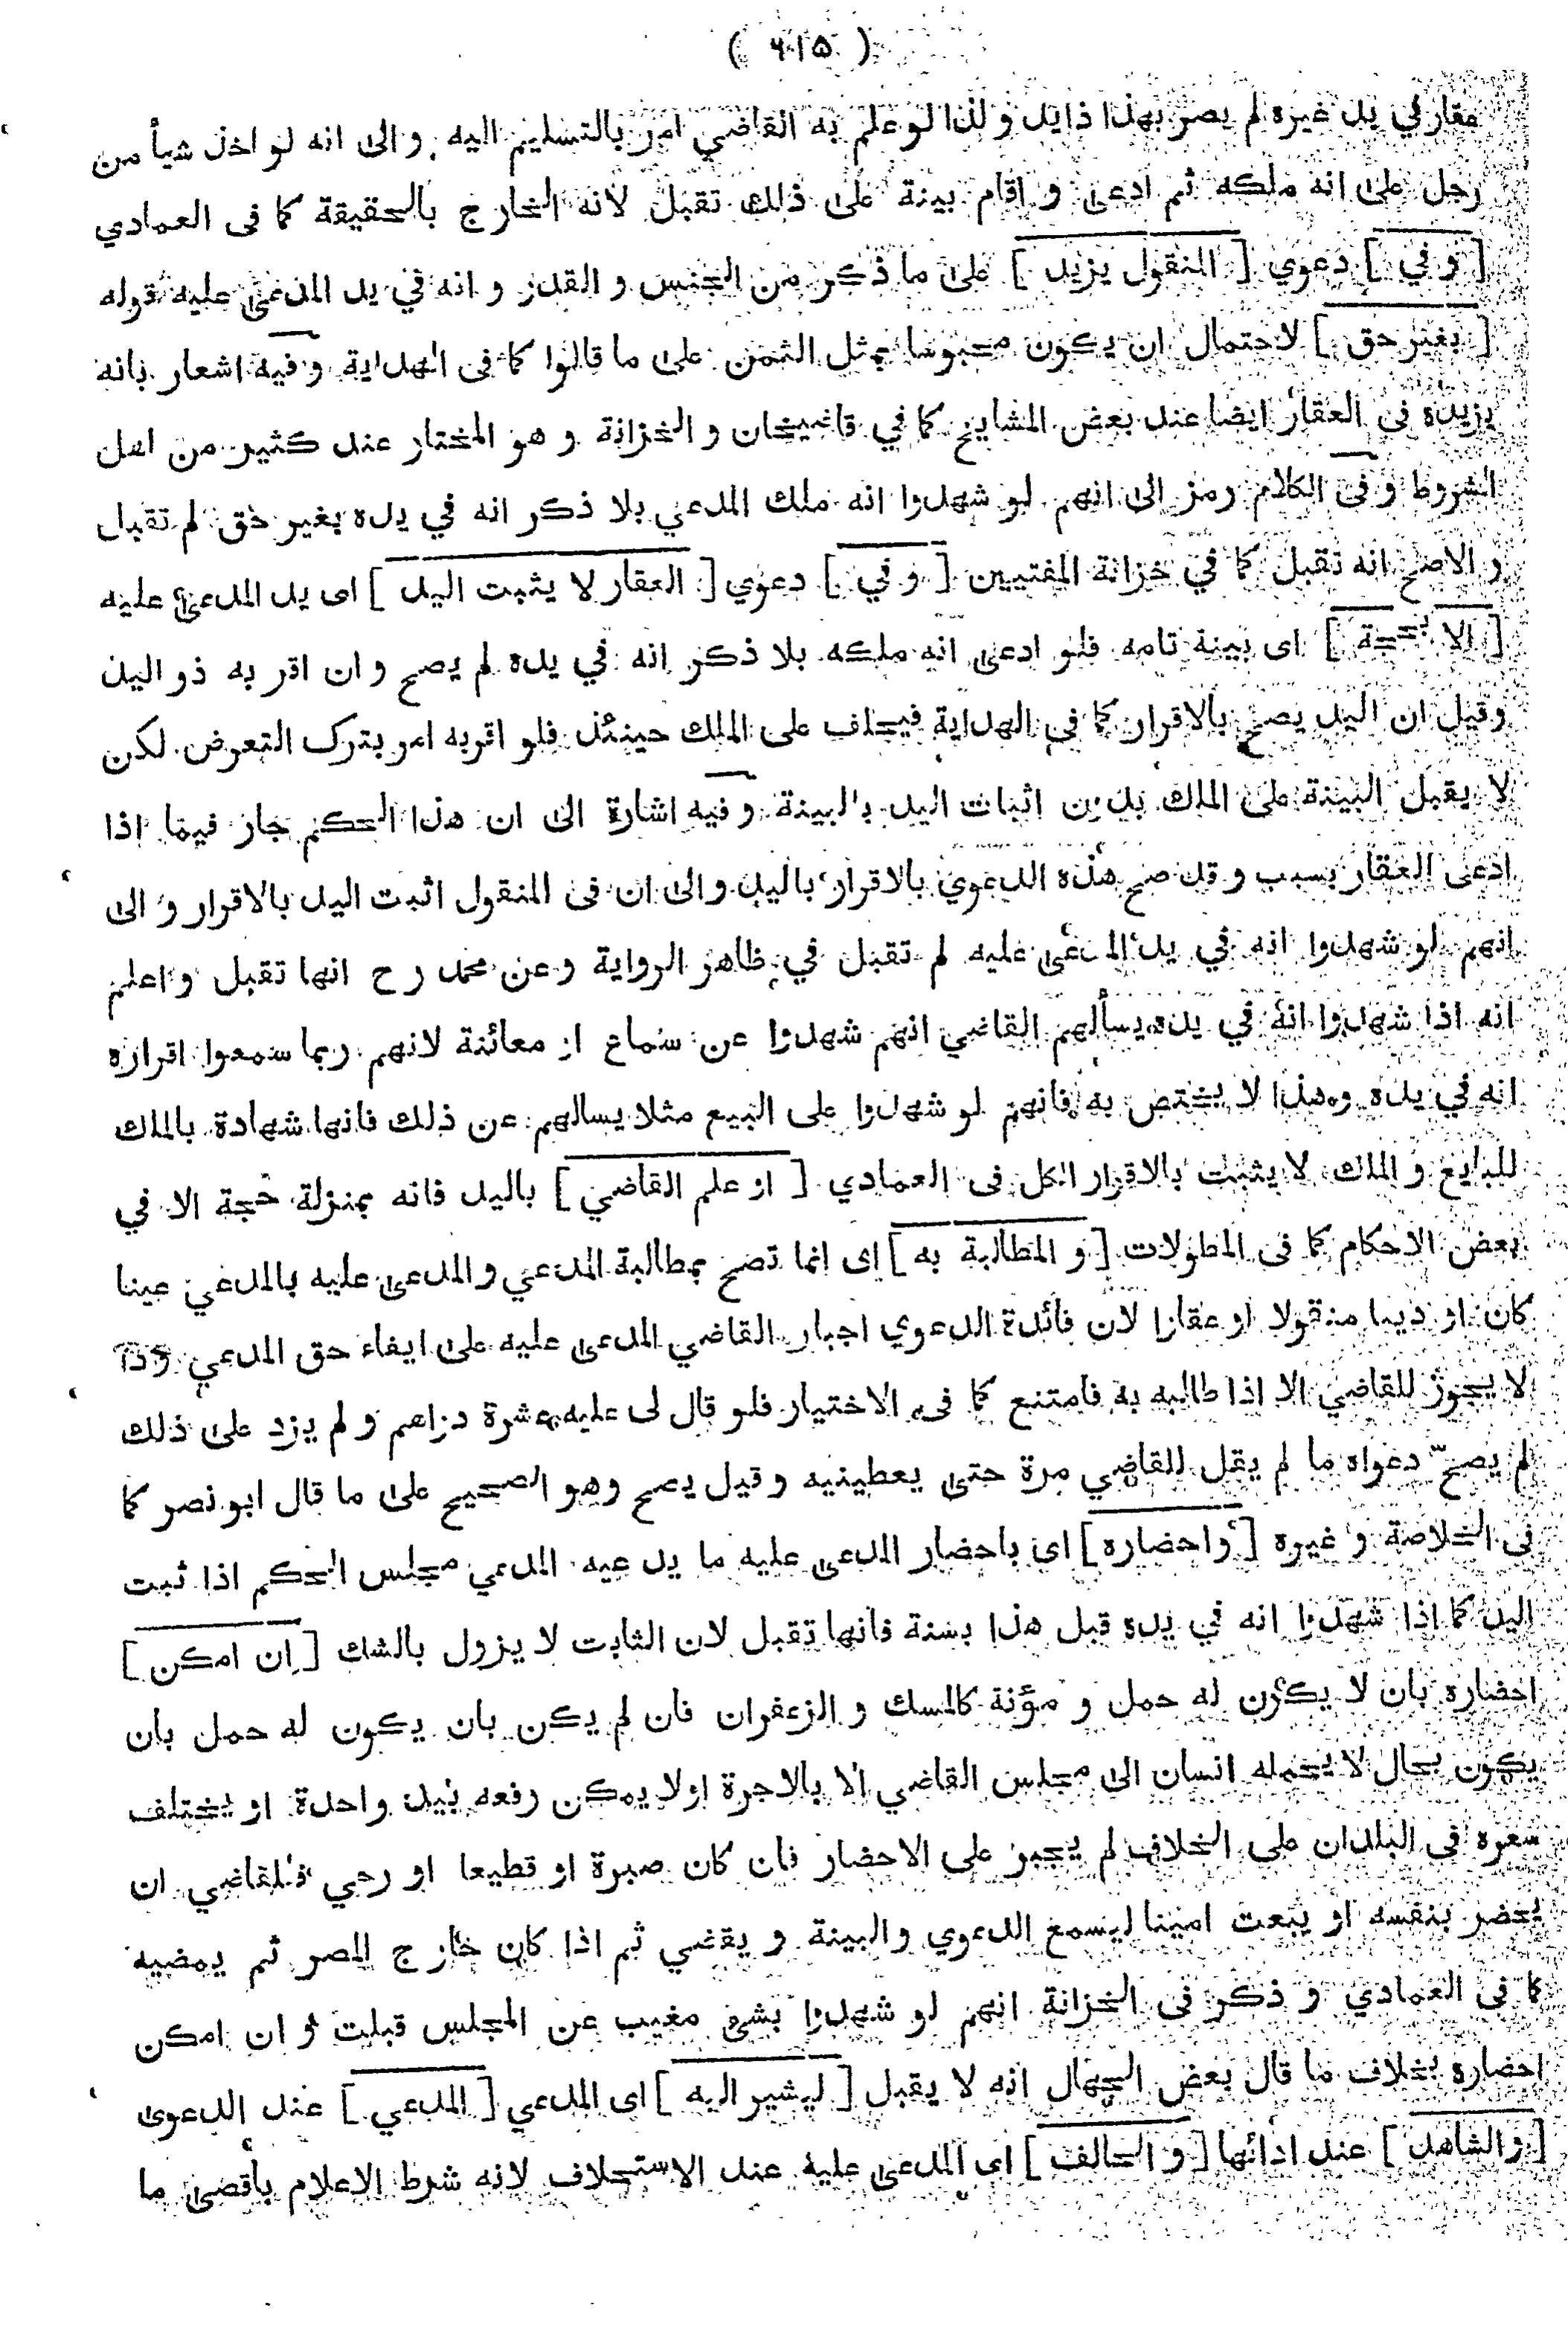 ( ٦١٥ )
عقار في يد غيره لم يصر بهذا ذا يد و لذا لو علم به القاضي امر بالتسليم اليه و الى انه لو اخذ شيأ من
رجل على انه ملكه ثم ادعى و اقام بينة على ذلك تقبل لانه الخارج بالحقيقة كما فى العمادي
[ و في ] دعوي [ المنقول يزيد ] على ما ذكر من الجنس و القدر و انه في يد المدعى عليه قوله
[ بغير حق ] لاحتمال ان يكون محبوسا بمثل الثمن على ما قالوا كما فى الهداية و فيه اشعار بانه
يزيده فى العقار ايضا عند بعض المشايخ كما في قاضيخان و الخزانة و هو المختار عند كثير من اهل
الشروط و فى الكلام رمز الى انهم لو شهدوا انه ملك المدعي بلا ذكر انه في يده بغير حق لم تقبل
و الاصح انه تقبل كما في خزانة المفتيين [ و في ] دعوي [ العقار لا يثبت اليد ] اى يد المدعى عليه
[ الا بحجة ] اى بينة تامه فلو ادعى انه ملكه بلا ذكر انه في يده لم يصح و ان اقر به ذو اليد
وقيل ان اليد يصح بالاقرار كما في الهداية فيحلف على الملك حينئذ فلو اقربه امر بترك التعرض لكن
لا يقبل البينة على الملك بدون اثبات اليد بالبينة و فيه اشارة الى ان هذا الحكم جار فيما اذا
ادعى العقار بسبب و قد صح هذه الدعوي بالاقرار باليد و الى ان فى المنقول اثبت اليد بالاقرار و الى
انهم لو شهدوا انه في يد المدعى عليه لم تقبل في ظاهر الرواية و عن محمد رح انها تقبل و اعلم
انه اذا شهدوا انه في يده يسألهم القاضي انهم شهدوا عن سماع او معائنة لانهم ربما سمعوا اقراره
انه في يده وهذا لا يختص به فانهم لو شهدوا على البيع مثلا يسالهم عن ذلك فانها شهادة بالملك
للبايع و الملك لا يثبت بالاقرار الكل فى العمادي [ او علم القاضي ] باليد فانه بمنزلة حجة الا في
بعض الاحكام كما فى المطولات [ و المطالبة به ] اى انما تصح بمطالبة المدعي و المدعى عليه بالمدعي عينا
كان او دينا منقولا او عقارا لان فائدة الدعوي اجبار القاضي المدعى عليه على ايفاء حق المدعي وذا
لا يجوز للقاضي الا اذا طالبه به فامتنع كما فى الاختيار فلو قال لى عليه عشرة دراهم و لم يزد على ذلك
لم يصح دعواه ما لم يقل للقاضي مرة حتى يعطينيه و قيل يصح وهو الصحيح على ما قال ابو نصر كما
فى الخلاصة و غيره [ و احضاره ] اى باحضار المدعى عليه ما يدعيه المدعي مجلس الحكم اذا ثبت
اليد كما اذا شهدوا انه في يده قبل هذا بسنة فانها تقبل لان الثابت لا يزول بالشك [ ان امكن ]
احضاره بان لا يكون له حمل و مؤنة كالمسك و الزعفران فان لم يكن بان يكون له حمل بان
يكون بحال لا يحمله انسان الى مجلس القاضي الا بالاجرة او لا يمكن رفعه بيد واحدة او يختلف
سعره فى البلدان على الخلاف لم يجبر على الاحضار فان كان صبرة او قطيعا او رحي فللقاضي ان
يحضر بنفسه او يبعث امينا ليسمع الدعوي و البينة و يقضي ثم اذا كان خارج المصر ثم يمضيه
كما فى العمادي و ذكر فى الخزانة انهم لو شهدوا بشئ مغيب عن المجلس قبلت و ان امكن
احضاره بخلاف ما قال بعض الجهال انه لا يقبل [ ليشير اليه ] اى المدعي [ المدعي ] عند الدعوى
[ و الشاهد ] عند ادائها [ و الحالف ] اى المدعى عليه عند الاستحلاف لانه شرط الاعلام بأقصى ما